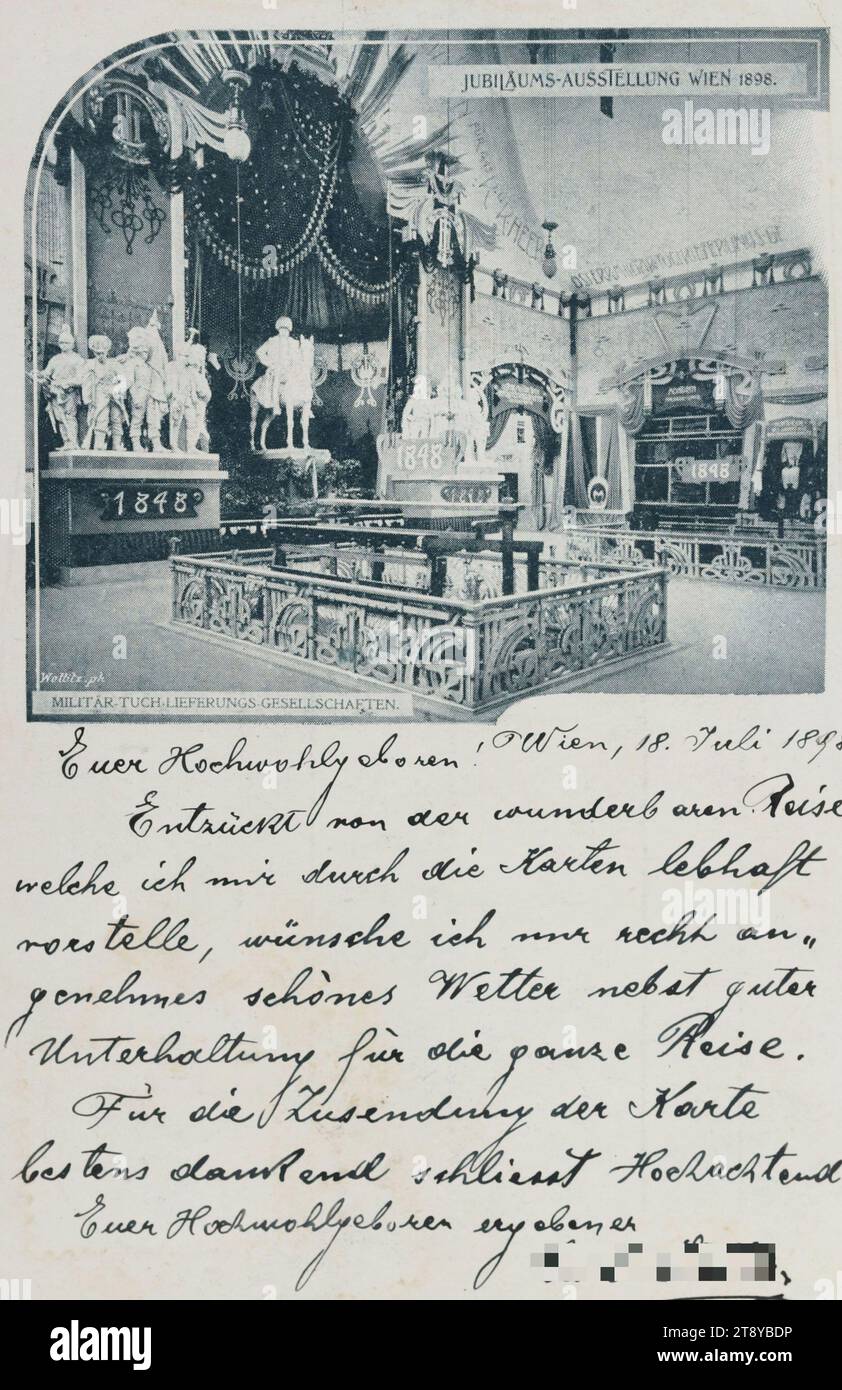 JUBILÄUMS-AUSSTELLUNG WIEN 1898.
1848
1848
1848
Wolbtz. ph
MILITÄR-TUCH-LIEFERUNGS-GESELLSCHAFTEN.
Wien, 18. Juli 1898
Euer Hochwohlgeboren!
Entzückt von der wunderbaren Reise
welche ich mir durch die Karten lebhaft
vorstelle, wünsche ich nur recht an„
genehmes schönes Wetter nebst guter
Unterhaltung für die ganze Reise.
Für die Zusendung der Karte
bestens dankend schliesst Hochachtend
Euer Hochwohlgeboren ergebener
alamy
Image ID: 2T8YBDP
www.alamy.com